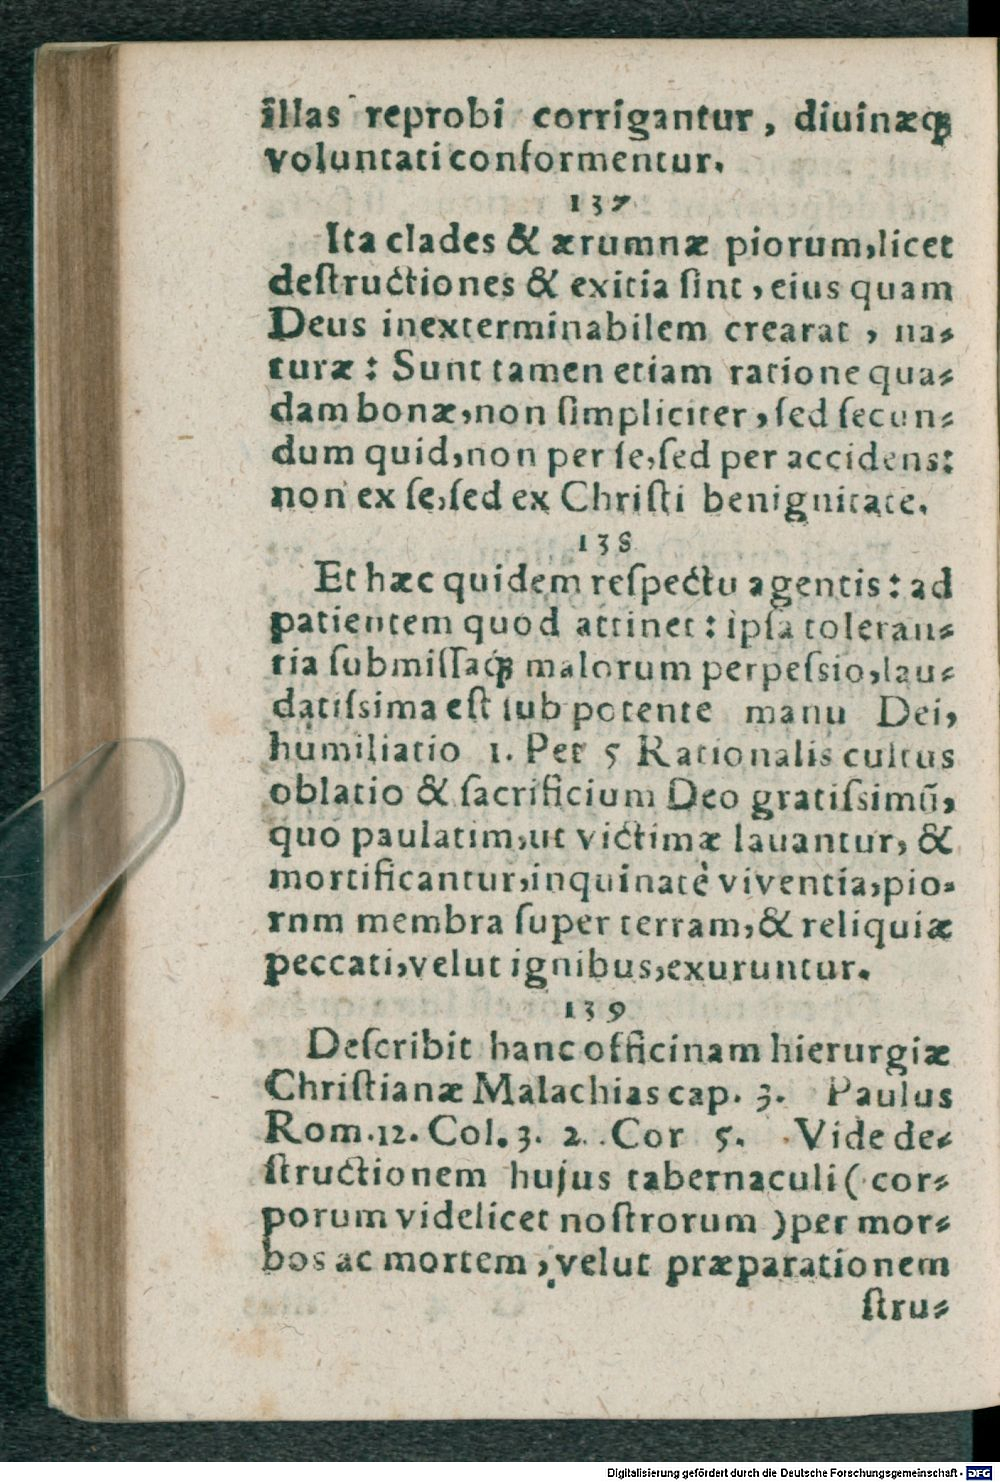 illas reprobi corrigantur, diuinæq́ꝫ
voluntati conformentur.
137
Ita clades & ærumnæ piorum, licet
deſtructiones & exitia ſint, eius quam
Deus inexterminabilem crearat, na⸗
turæ: Sunt tamen etiam ratione qua⸗
dam bonæ, non ſimpliciter, ſed ſecun⸗
dum quid, non per ſe, ſed per accidens:
non ex ſe, ſed ex Chriſti benignitate.
138
Et hæc quidem reſpectu agentis: ad
patientem quod attinet: ipſa toleran⸗
tia ſubmiſſaq́ꝫ malorum perpeſsio, lau⸗
datiſsima eſt ſub potente manu Dei,
humiliatio 1. Pet 5 Rationalis cultus
oblatio & ſacrificium Deo gratiſsimũ,
quo paulatim, ut victimæ lauantur, &
mortificantur, inquinatè viventia, pio⸗
rnm membra ſuper terram, & reliquiæ
peccati, velut ignibus, exuruntur.
139
Deſcribit hanc officinam hierurgiæ
Chriſtianæ Malachias cap. 3. Paulus
Rom. 12. Col. 3. 2. Cor 5. Vide de⸗
ſtructionem hujus tabernaculi ( cor⸗
porum videlicet noſtrorum ) per mor⸗
bos ac mortem, velut præparationem
ſtru⸗
Digitalisierung gefördert durch die Deutsche Forschungsgemeinschaft - DFG